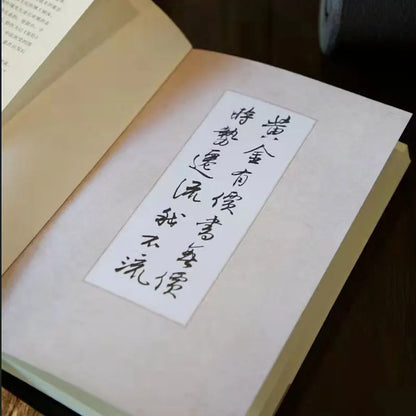 黃金有價書無價
時勢遷流我不流